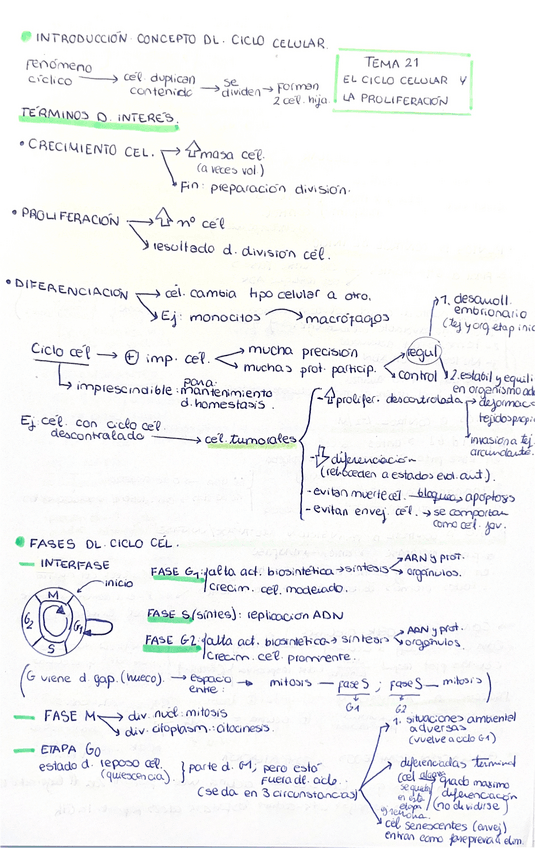 INTRODUCCIÓN. CONCEPTO DL. CICLO CELULAR.
TEMA 21
EL CICLO CELULAR Y
LA PROLIFERACIÓN
fenómeno
cíclico → cél. duplican
contenido → se
dividen → forman
2 cél. hija.
TÉRMINOS D. INTERÉS.
• CRECIMIENTO CEL. → ⇧ masa cél.
(a veces vol)
Fin: preparación división.
• PROLIFERACIÓN → ⇧ nº cél
resultado d. división cél.
• DIFERENCIACIÓN → cél. cambia tipo celular a otro.
Ej: monocitos → macrófagos
Ciclo cél → ⊕ imp. cél. → mucha precisión
muchas prot. particip. → regul
control
1. desarroll.
embrionario
(tej y org. etap inic
2. estabil y equili
en organismo ad
imprescindible para: mantenimiento
d. homestasis.
Ej: cél. con ciclo cél.
descontralado → cél. tumorales
- ⇧ prolifer. descontrolada → deformac
tejidos propi
invasion a tej.
circundante.
- ⇩ diferenciación
(retroceden a estados evol. ant).
- evitan muerte cél. bloquea apoptosis
- evitan envej. cél. → se comportan
como cél. jov.
FASES DL CICLO CÉL.
INTERFASE
inicio
M
G1
S
G2
FASE G1: /alta act. biosintética → síntesis → ARN y prot.
orgánulos.
/crecim. cél. moderado.
FASE S (síntes): replicación ADN
FASE G2: /alta act. biosintética → síntesis → ARN y prot.
orgánulos.
/crecim. cél. prominente.
(G viene d gap. (hueco). → espacio
entre: → mitosis — fase S ; fase S — mitosis)
G1 G2
FASE M → div. nucl: mitosis
div. citoplasm: citocinesis.
ETAPA G0
estado d. reposo cél.
(quiescencia). } parte d. G1, pero está
fuera d. ciclo.
(se da en 3 circunstancias)
1. situaciones ambientel
adversas
(vuelve a cclo G1)
diferenciadas terminal
(cél
se queda
en esta
etapa
grado maximo
diferenciación
(no dividirse)
cél senescentes (envej)
entran como